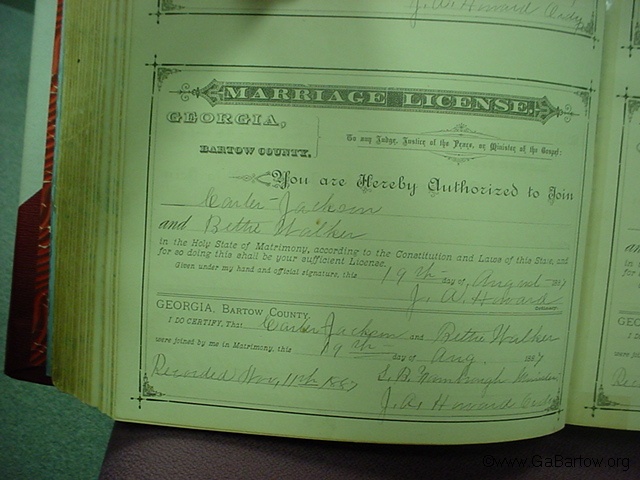 J. W. Howard Ordy
MARRIAGE LICENSE.
GEORGIA,
BARTOW COUNTY.
To any Judge, Justice of the Peace, or Minister of the Gospel:
You are Hereby Authorized to Join
Carter Jackson
and Bettie Walker
in the Holy State of Matrimony, according to the Constitution and Laws of this State, and
for so doing this shall be your sufficient License.
Given under my hand and official signature, this 19th day of August 1887
J. A. Howard
ORDINARY.
GEORGIA, BARTOW COUNTY.
I DO CERTIFY, That Carter Jackson and Bettie Walker
were joined by me in Matrimony, this 19th day of Aug. 1887
Recorded Nov, 11th 1887
E. B. Minister
J. A. Howard Ordy
©www.GaBartow.org